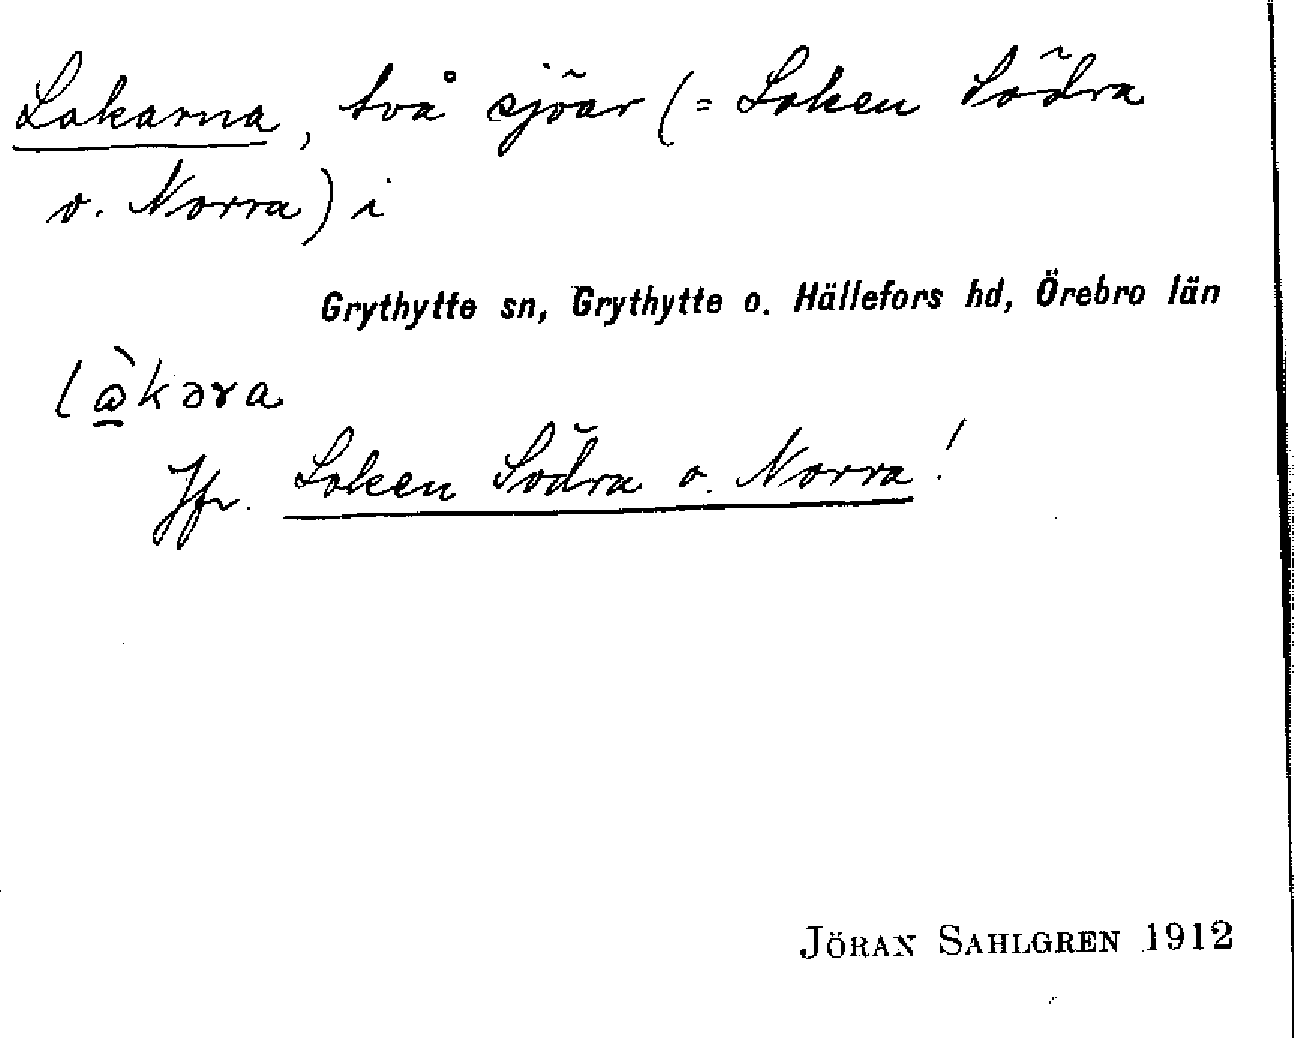 Lokarna, två sjöar (= Loken Södra
o. Norra) i
Grythytte sn, Grythytte o. Hällefors hd, Örebro län
lὼ̲kəra
Jfr. Loken Södra o. Norra!
JÖRAN SAHLGREN 1912